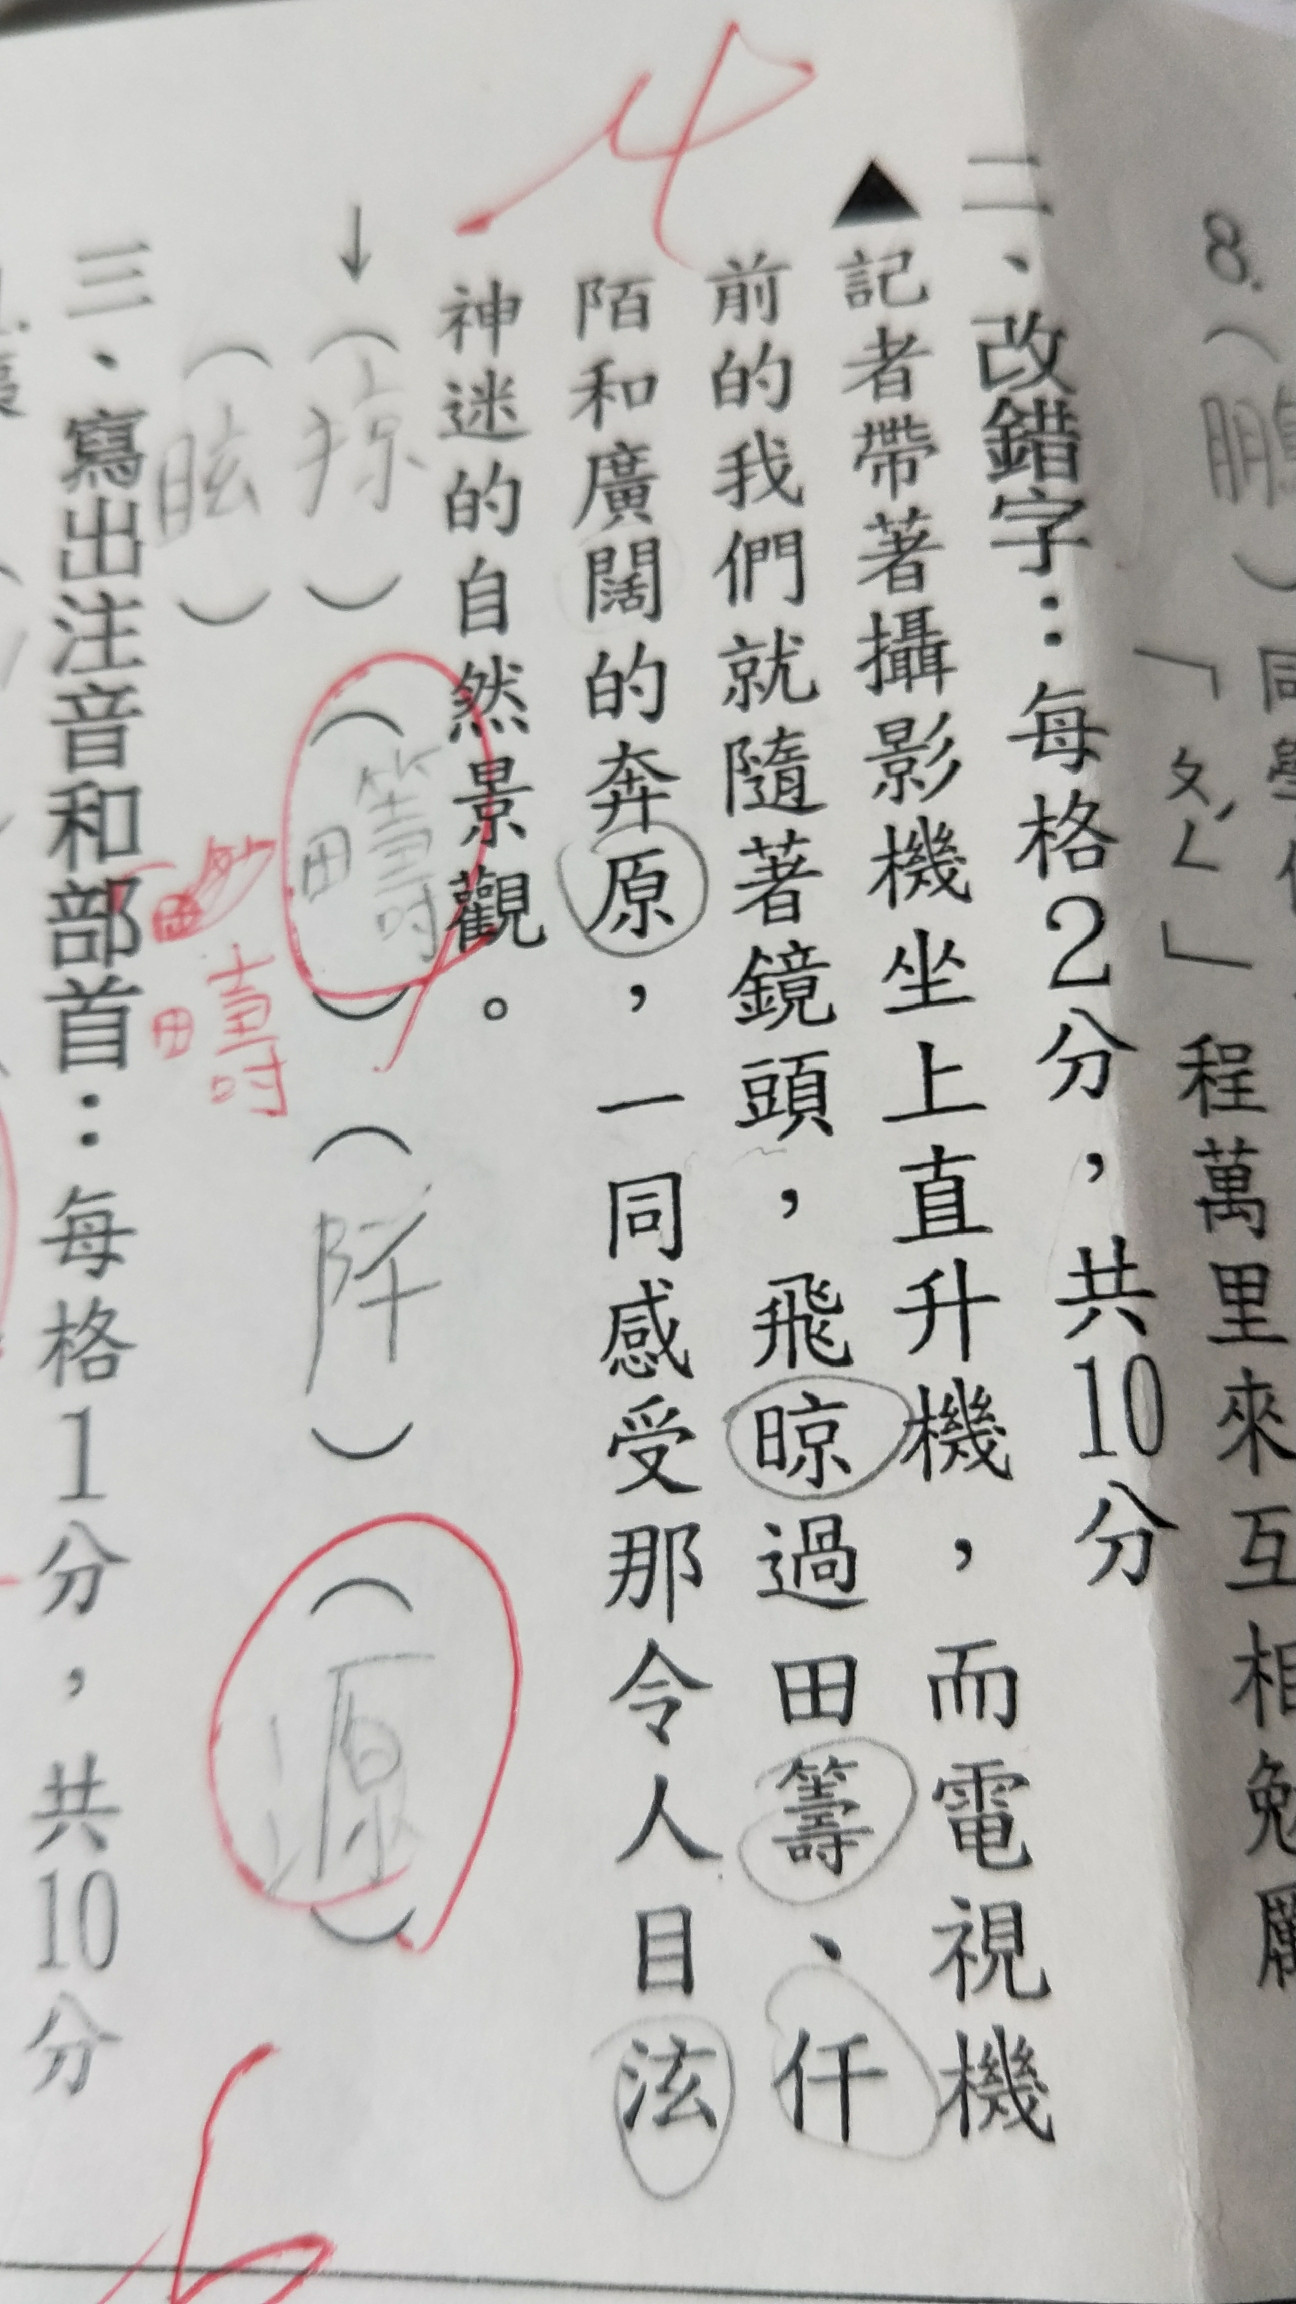 8.（鵬）同學
「ㄆㄥˊ」程萬里來互相勉勵
二、改錯字：每格2分，共10分
▲記者帶著攝影機坐上直升機，而電視機
前的我們就隨著鏡頭，飛晾過田籌、仟
陌和廣闊的奔原，一同感受那令人目泫
神迷的自然景觀。
4
↓（掠）（）（阡）（源）
（眩）
疇
三、寫出注音和部首：每格1分，共10分
1.
6